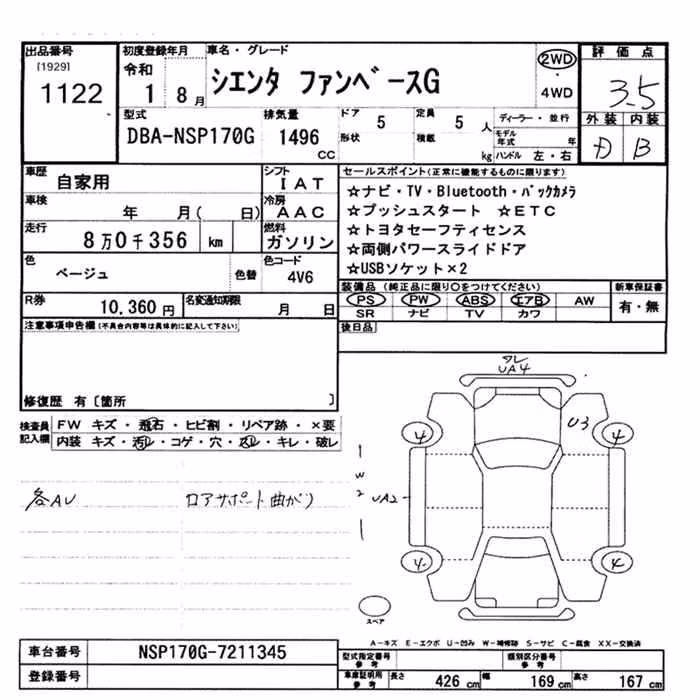 出品番号
[1929]
1122
初度登録年月
令和
1 8月
車名・グレード
シエンタ ファンベースG
2WD
・
4WD
評価点
3.5
外装 内装
D B
型式
DBA-NSP170G
排気量
1496
CC
ドア
5
形状
定員
5 人
積載
kg
ディーラー・並行
モデル年式 年
ハンドル 左・右
車歴
自家用
シフト
IAT
車検
年 月( 日)
冷房
AAC
走行
8万0千356 km
燃料
ガソリン
色
ベージュ
色替
色コード
4V6
R券
10.360円
名変通知期限
月 日
セールスポイント(正常に機能するものに限ります)
☆ナビ・TV・Bluetooth・バックカメラ
☆プッシュスタート ☆ETC
☆トヨタセーフティセンス
☆両側パワースライドドア
☆USBソケット×2
装備品(純正品に限り○をつけてください)
新車保証書
PS PW ABS エアB AW
SR ナビ TV カワ
有・無
後日品
注意事項申告欄(不具合内容等は具体的に記入して下さい)
修復歴 有〔箇所 〕
検査員記入欄
FW キズ・飛石・ヒビ割・リペア跡・×要
内装 キズ・汚レ・コゲ・穴・スレ・キレ・破レ
各AU
ロアサポート曲がり
ワレ
UA4
U3
4
4
W
2
UA2
4
4
スペア
A-キズ E-エクボ U-凹み W-補修跡 S-サビ C-腐食 XX-交換済
車台番号
NSP170G-7211345
登録番号
型式指定番号
参考
類別区分番号
参考
車庫証明用
参考
長さ 426 cm 幅 169 cm 高さ 167 cm